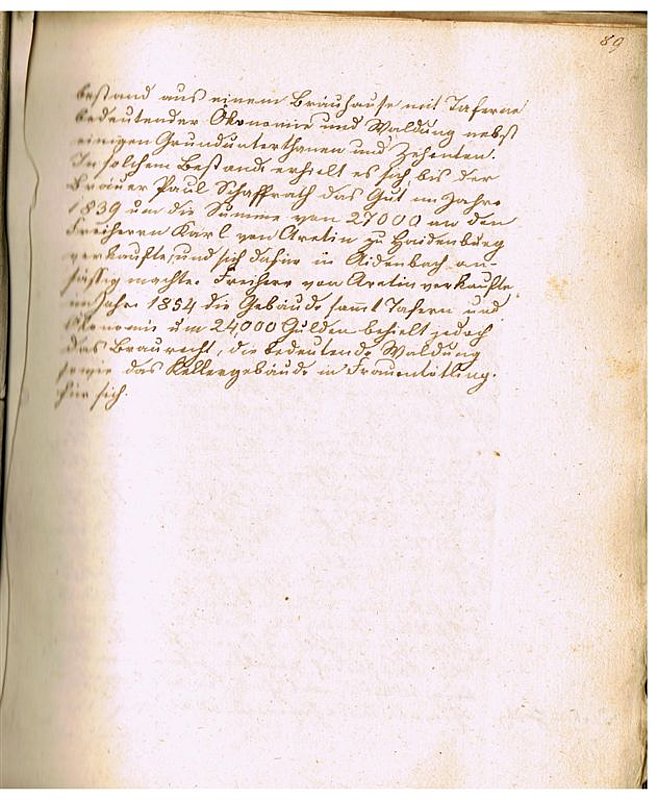 89
bestand aus einem Bräuhause mit Taferne
bedeutender Ökonomie und Waldung nebst
einigen Grundunterthanen und Zehenten.
In solchem Bestande erhielt es sich, bis der
Bräuer Paul Schaffrath das Gut im Jahre
1839 um die Summe von 27000 an den
Freiherrn Karl von Aretin zu Haidenburg
verkaufte, und sich dafür in Aidenbach an-
sässig machte. Freiherr von Aretin verkaufte
im Jahre 1854 die Gebäude sammt Tafern und
Ökonomie um 24,000 Gulden behielt jedoch
das Braurecht, die bedeutende Waldung
sowie das Kellergebäude in Frauentödling.
für sich.